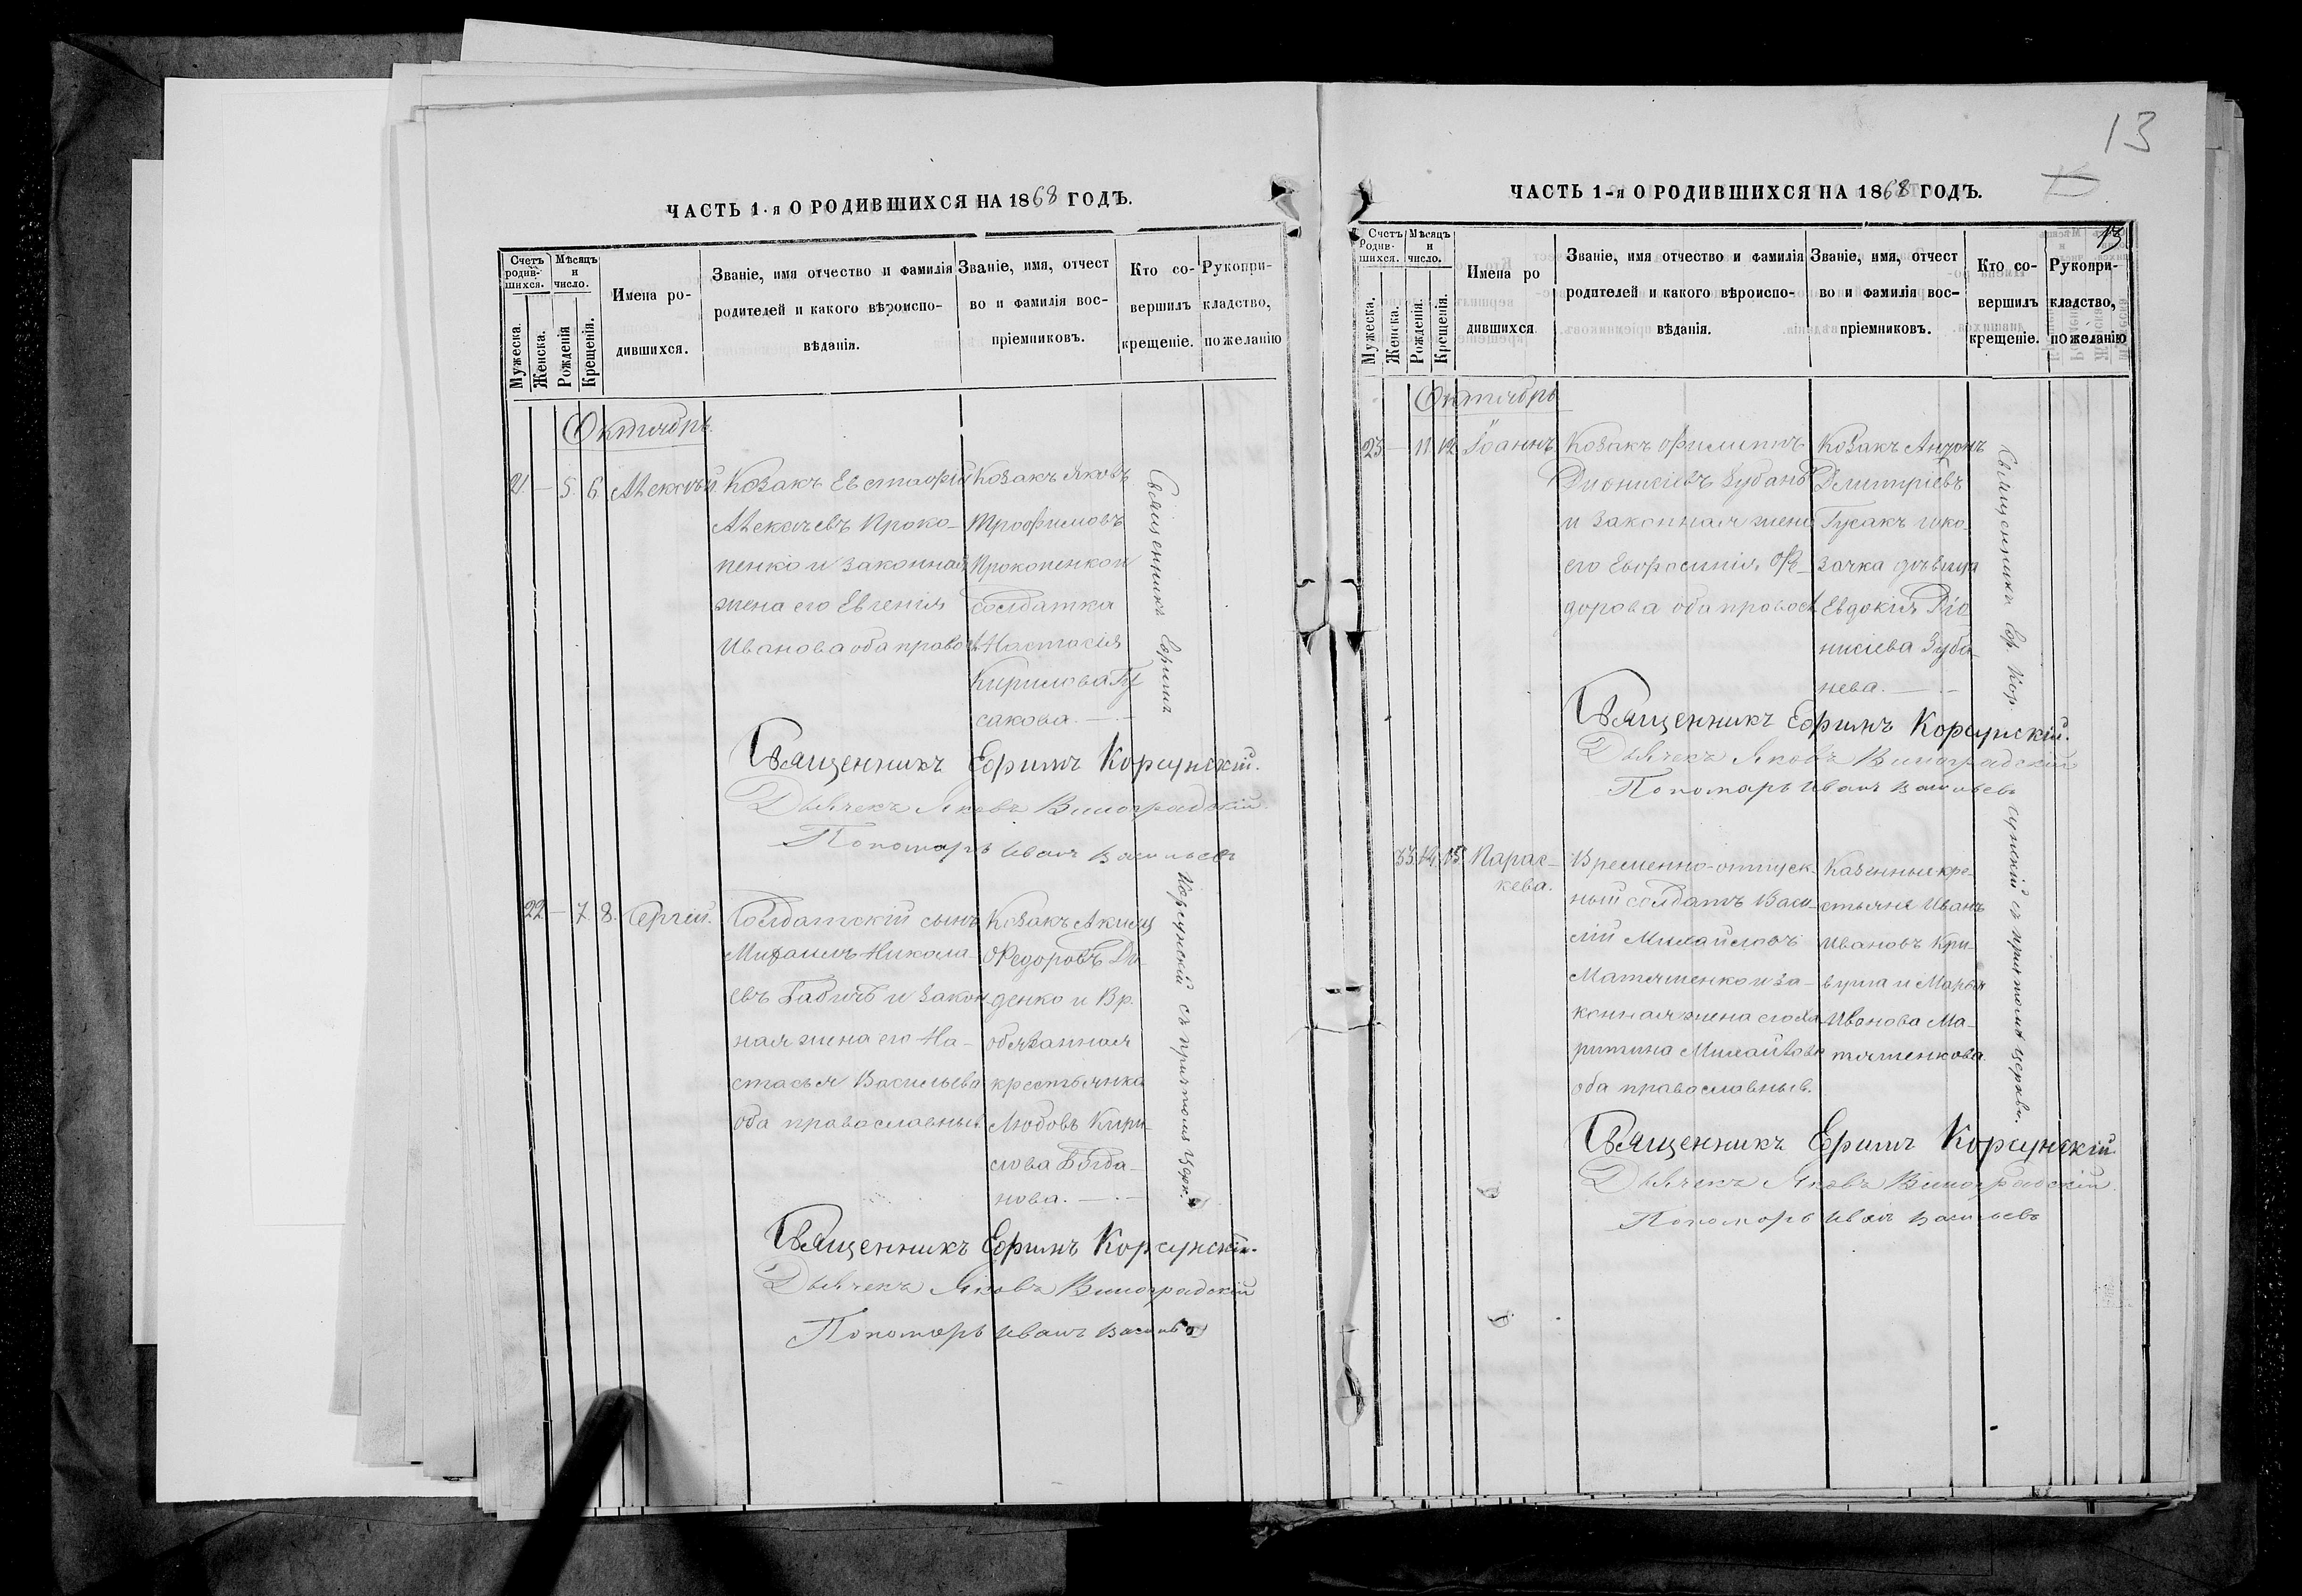 ЧАСТЬ 1-я О РОДИВШИХСЯ НА 1868 ГОДЪ.
Счетъ родив-шихся.
Мужеска.
Женска.
Мѣсяцъ и число.
Рожденія
Крещенія.
Имена ро-
дившихся.
Званіе, имя отчество и фамилія
родителей и какого вѣроиспо-
вѣданія.
Званіе, имя, отчест
во и фамилія вос-
пріемниковъ.
Кто со-
вершилъ
крещеніе.
Рукопри-
кладство,
по желанію
Октябрь
21. — 5. 6. Алексѣй.
Козакъ Евстафій
Алексѣевъ Проко-
пенко и законная
жена его Евгенія
Иванова оба правосл
Козакъ Яковъ
Трофимовъ
Прокопенко и
солдатка
Настасія
Кирилова Гу
сакова. —
Священникъ Ефимъ Корсунскій.
Дьячекъ Яковъ Виноградскій.
Пономарь Иванъ Васильевъ
22 — 7. 8. Сергій.
Солдатскій сынъ
Михаилъ Никола-
евъ Бабичъ и закон
ная жена его На-
стасья Васильева
оба православные
Козакъ Акимъ
Федоровъ Ди-
денко и Вр.
обязанная
крестьянка
Любовь Кири-
лова Богда-
нова. —
Священникъ Ефимъ Корсунскій съ причтомъ церк.
Священникъ Ефимъ Корсунскій.
Дьячекъ Яковъ Виноградскій
Пономарь Иванъ Васильевъ
13
ЧАСТЬ 1-я О РОДИВШИХСЯ НА 1868 ГОДЪ.
13
Счетъ Родив-шихся.
Мужеска.
Женска.
Мѣсяцъ и число.
Рожденія.
Крещенія.
Имена ро
дившихся
Званіе, имя отчество и фамилія
родителей и какого вѣроиспо-
вѣданія.
Званіе, имя, отчест
во и фамилія вос-
пріемниковъ.
Кто со-
вершилъ
крещеніе.
Рукопри-
кладство,
по желанію
Октябрь
23 — 11 12 Іоаннъ
Козакъ Филиппъ
Діонисіевъ Зубань
и законная жена
его Евфросинія Фе-
дорова оба правосл
Козакъ Антонъ
Дмитріевъ
Гусакъ и ко-
зачка дѣвица
Евдокія Діо
нисіева Зуба-
нева. —
Священникъ Ефимъ Корсунскій.
Дьячекъ Яковъ Виноградскій
Пономарь Иванъ Васильевъ
33 14 15 Парас-
кева.
Временно-отпуск-
ный солдатъ Васи-
лій Михайловъ
Матяшенко и за-
конная жена его Ха
ритина Михайлова
оба православные.
Казенные кре-
стьяне Иванъ
Ивановъ Кри-
вуша и Марья
Иванова Ма-
тяшенкова.
Священникъ Еф. Кор. сунскій съ причтомъ церкви.
Священникъ Ефимъ Корсунскій
Дьячекъ Яковъ Виноградскій.
Пономарь Иванъ Васильевъ